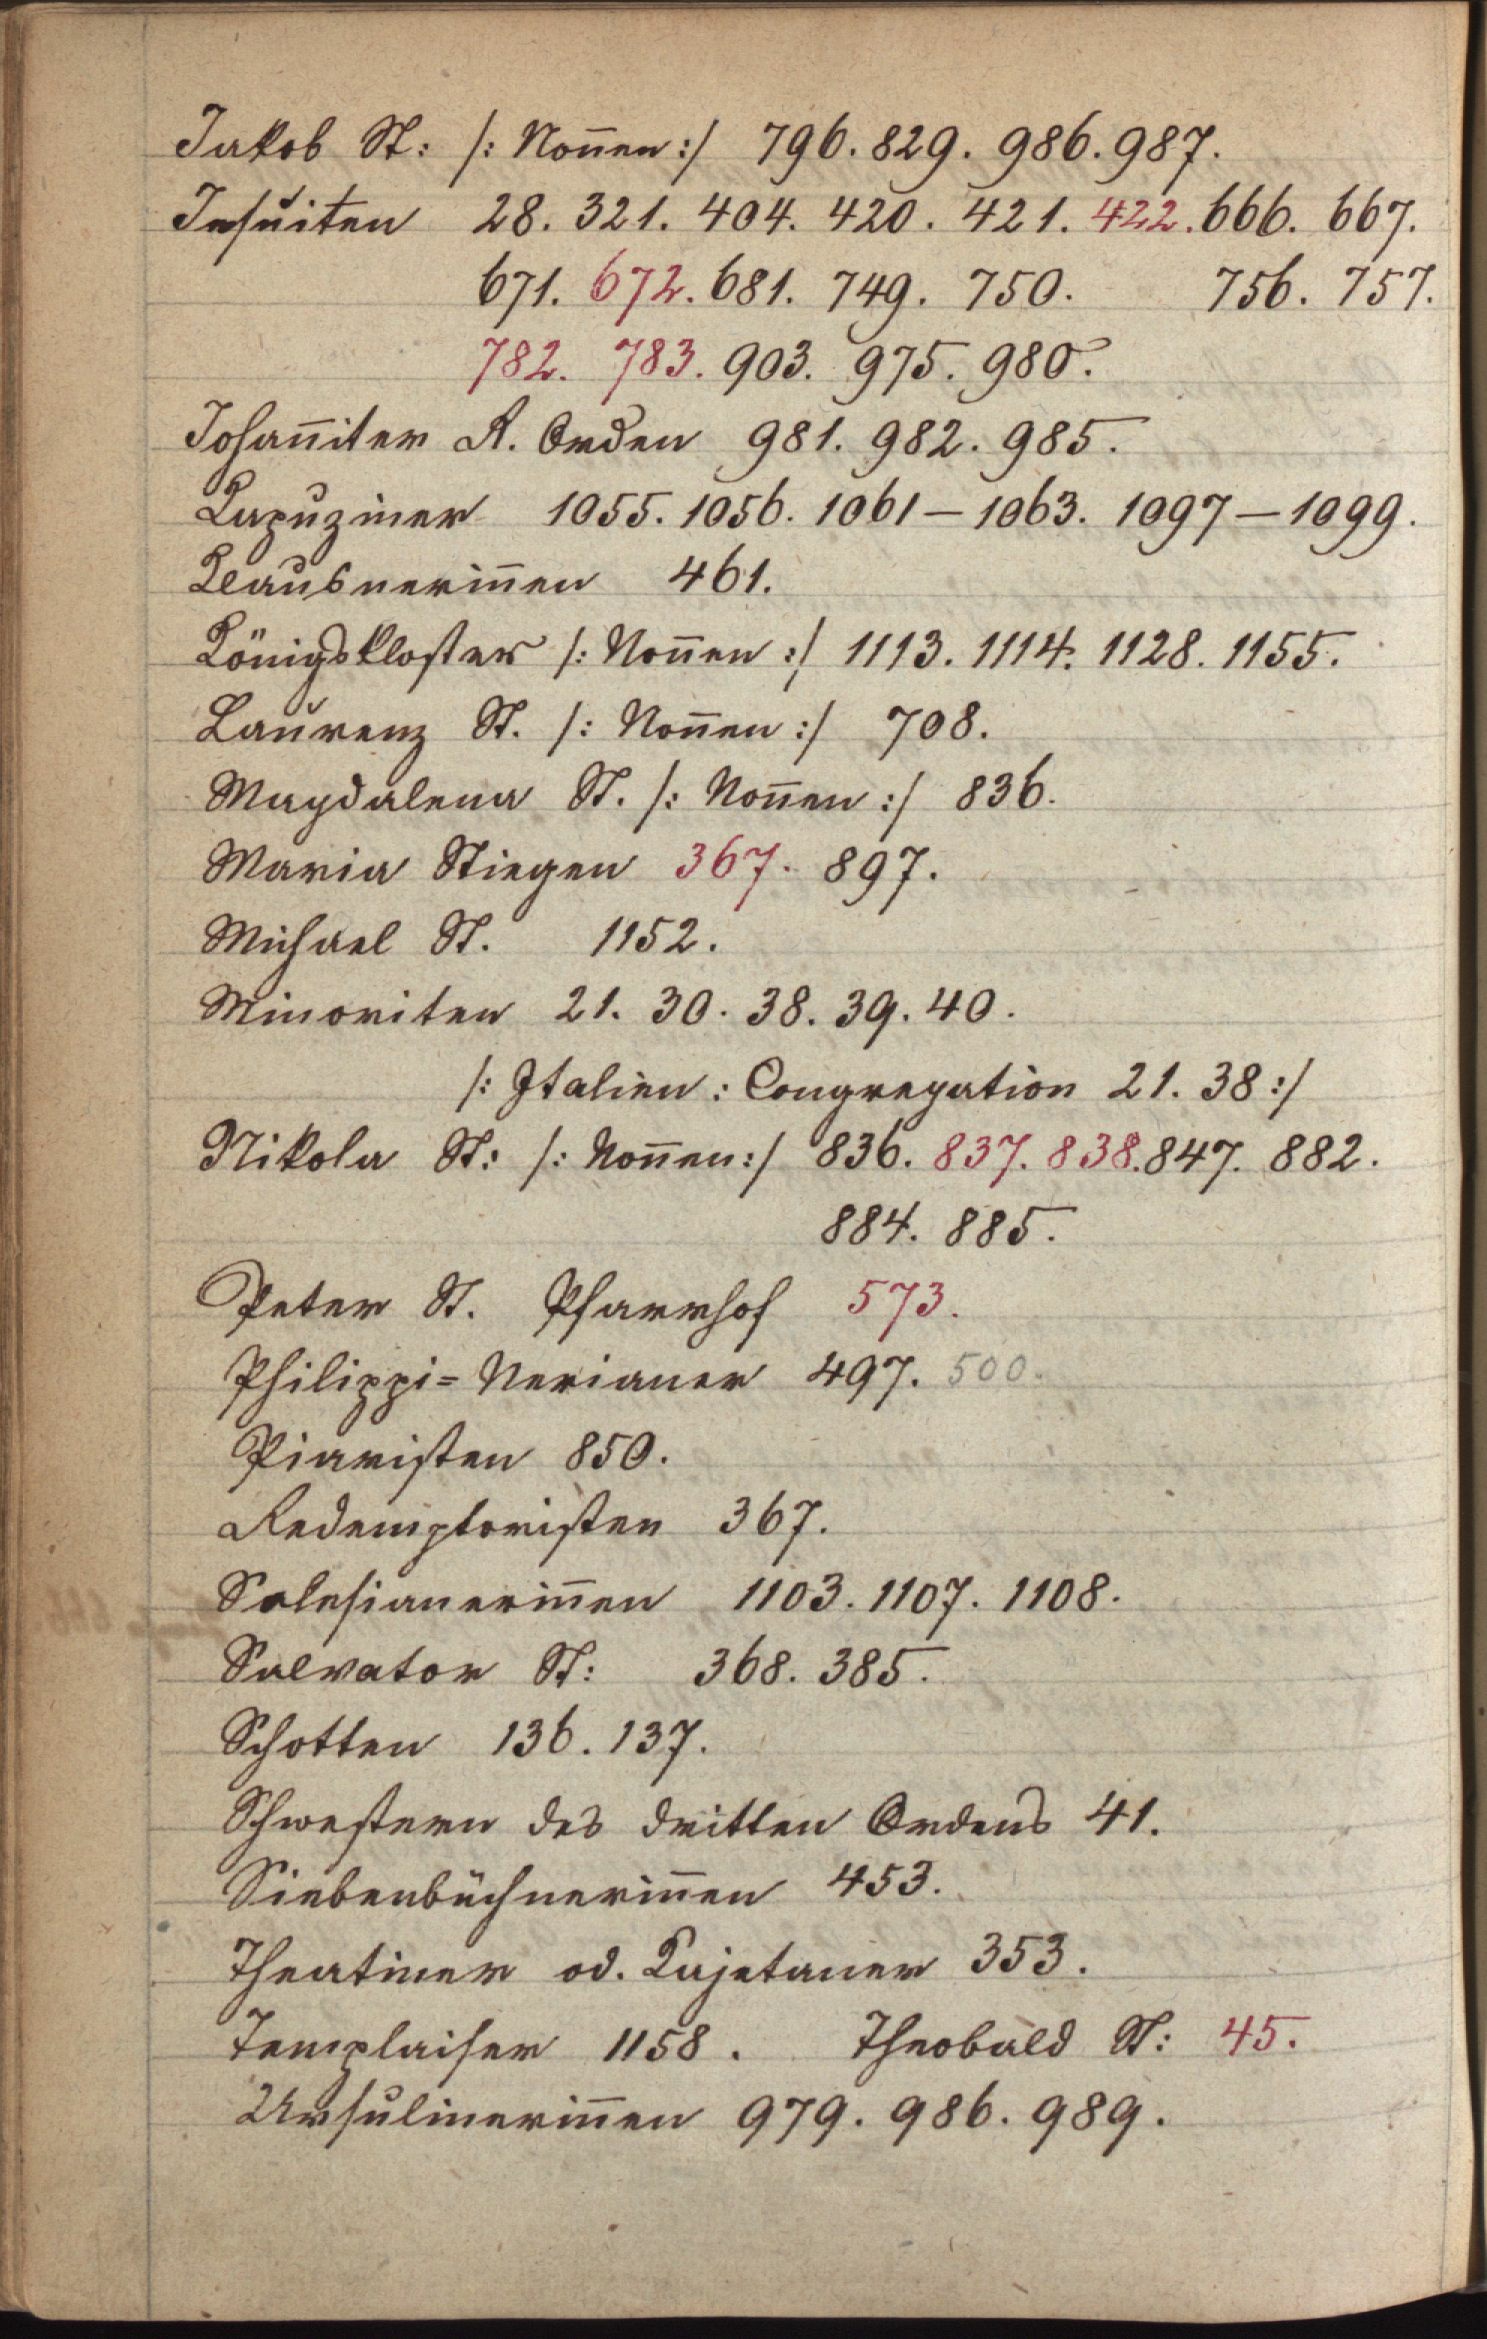 Jakob St: /: Non̄en :/ 796. 829. 986. 987.
Jesuiten 28. 321. 404. 420. 421. 422. 666. 667.
671. 672. 681. 749. 750. 756. 757.
782. 783. 903. 975. 980.
Johan̄iter R. Orden 981. 982. 985.
Kapuziner 1055. 1056. 1061 – 1063. 1097 – 1099.
Klausnerin̄en 461.
Königskloster /: Non̄en :/ 1113. 1114. 1128. 1155.
Laurenz St. /: Non̄en :/ 708.
Magdalena St. /: Non̄en :/ 836.
Maria Stiegen 367. 897.
Michael St. 1152.
Minoriten 21. 30. 38. 39. 40.
/: Italien: Congregation 21. 38 :/
Nikola St: /: Non̄en :/ 836. 837. 838. 847. 882.
884. 885.
Peter St. Pfarrhof 573.
Philippi= Nerianer 497. 500.
Piaristen 850.
Redemptoristen 367.
Salesianerin̄en 1103. 1107. 1108.
Salvator St: 368. 385.
Schotten 136. 137.
Schwestern des dritten Ordens 41.
Siebenbüchnerin̄en 453.
Theatiner od. Kajetaner 353.
Templaiser 1158. Theobald St: 45.
Ursulinerin̄en 979. 986. 989.